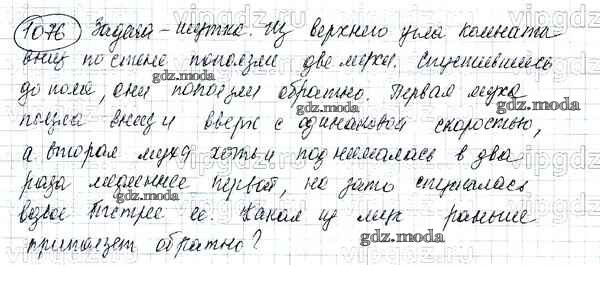 1076 Задача - шутка. Из верхнего угла комнаты
вниз по стене поползли две мухи. Спустившись
до пола, они поползли обратно. Первая муха
ползла вниз и вверх с одинаковой скоростью,
а вторая муха хотя и поднималась в два
раза медленнее первой, но зато спускалась
вдвое быстрее ее. Какая из мух раньше
приползет обратно?
gdz.moda
gdz.moda
gdz.moda
gdz.moda
gdz.moda
gdz.moda